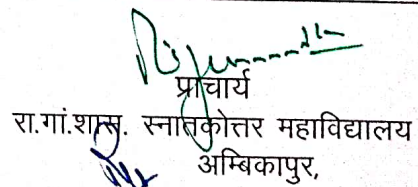 प्राचार्य
रा.गां.शास. स्नातकोत्तर महाविद्यालय
अम्बिकापुर,